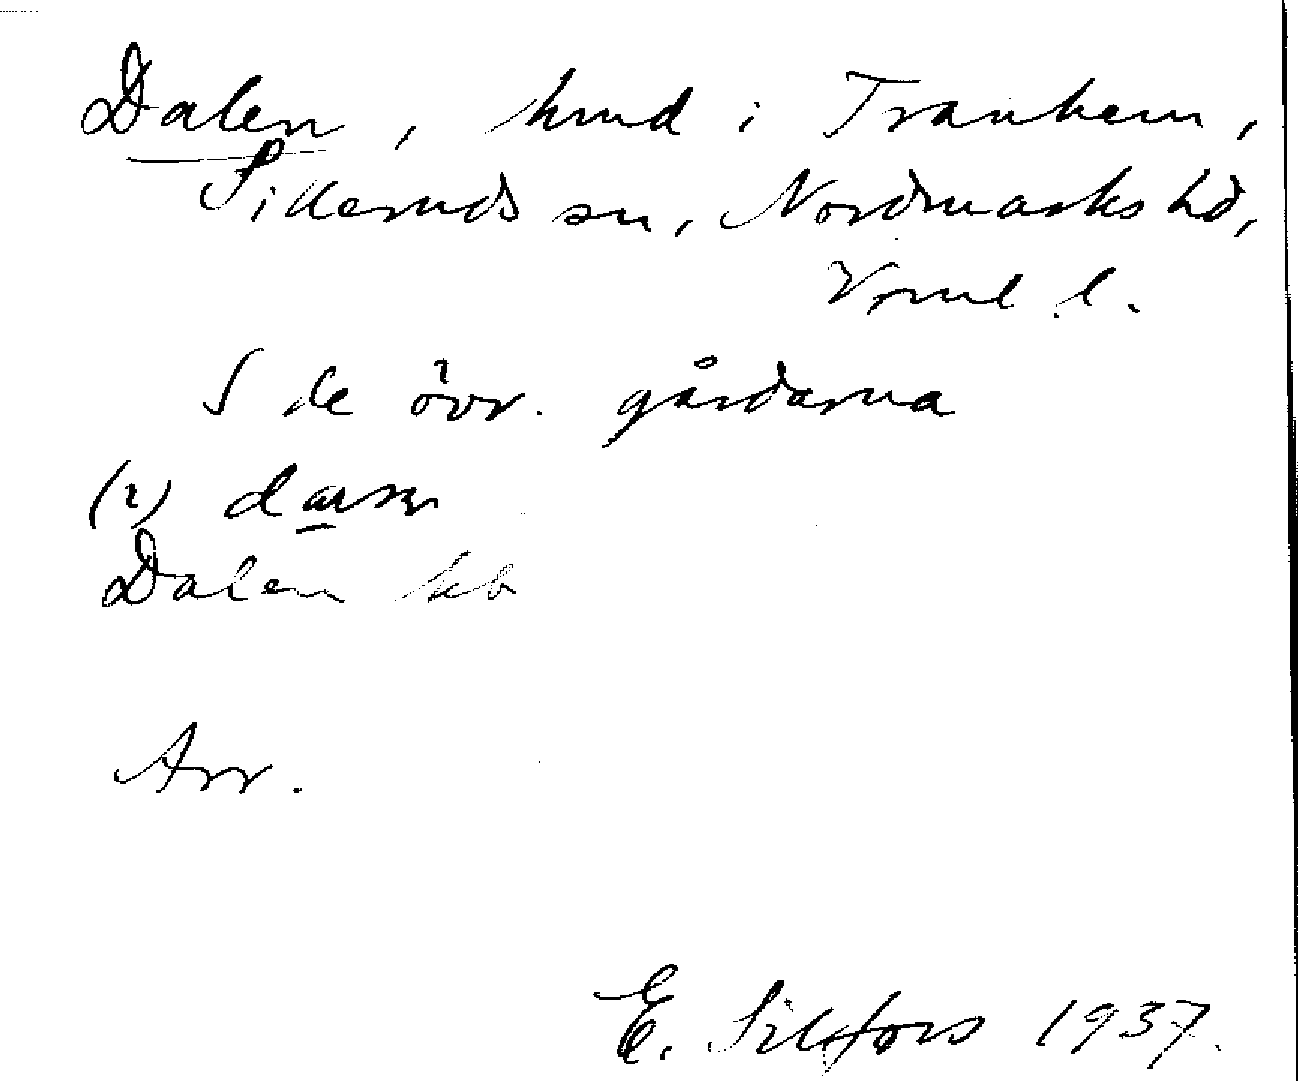 Dalen, hmd i Tranhem,
Silleruds sn, Nordmarks hd,
Vrml l.
S de övr. gårdarna
(1)
Dalen kb
Arr.
E. Silfors 1937.